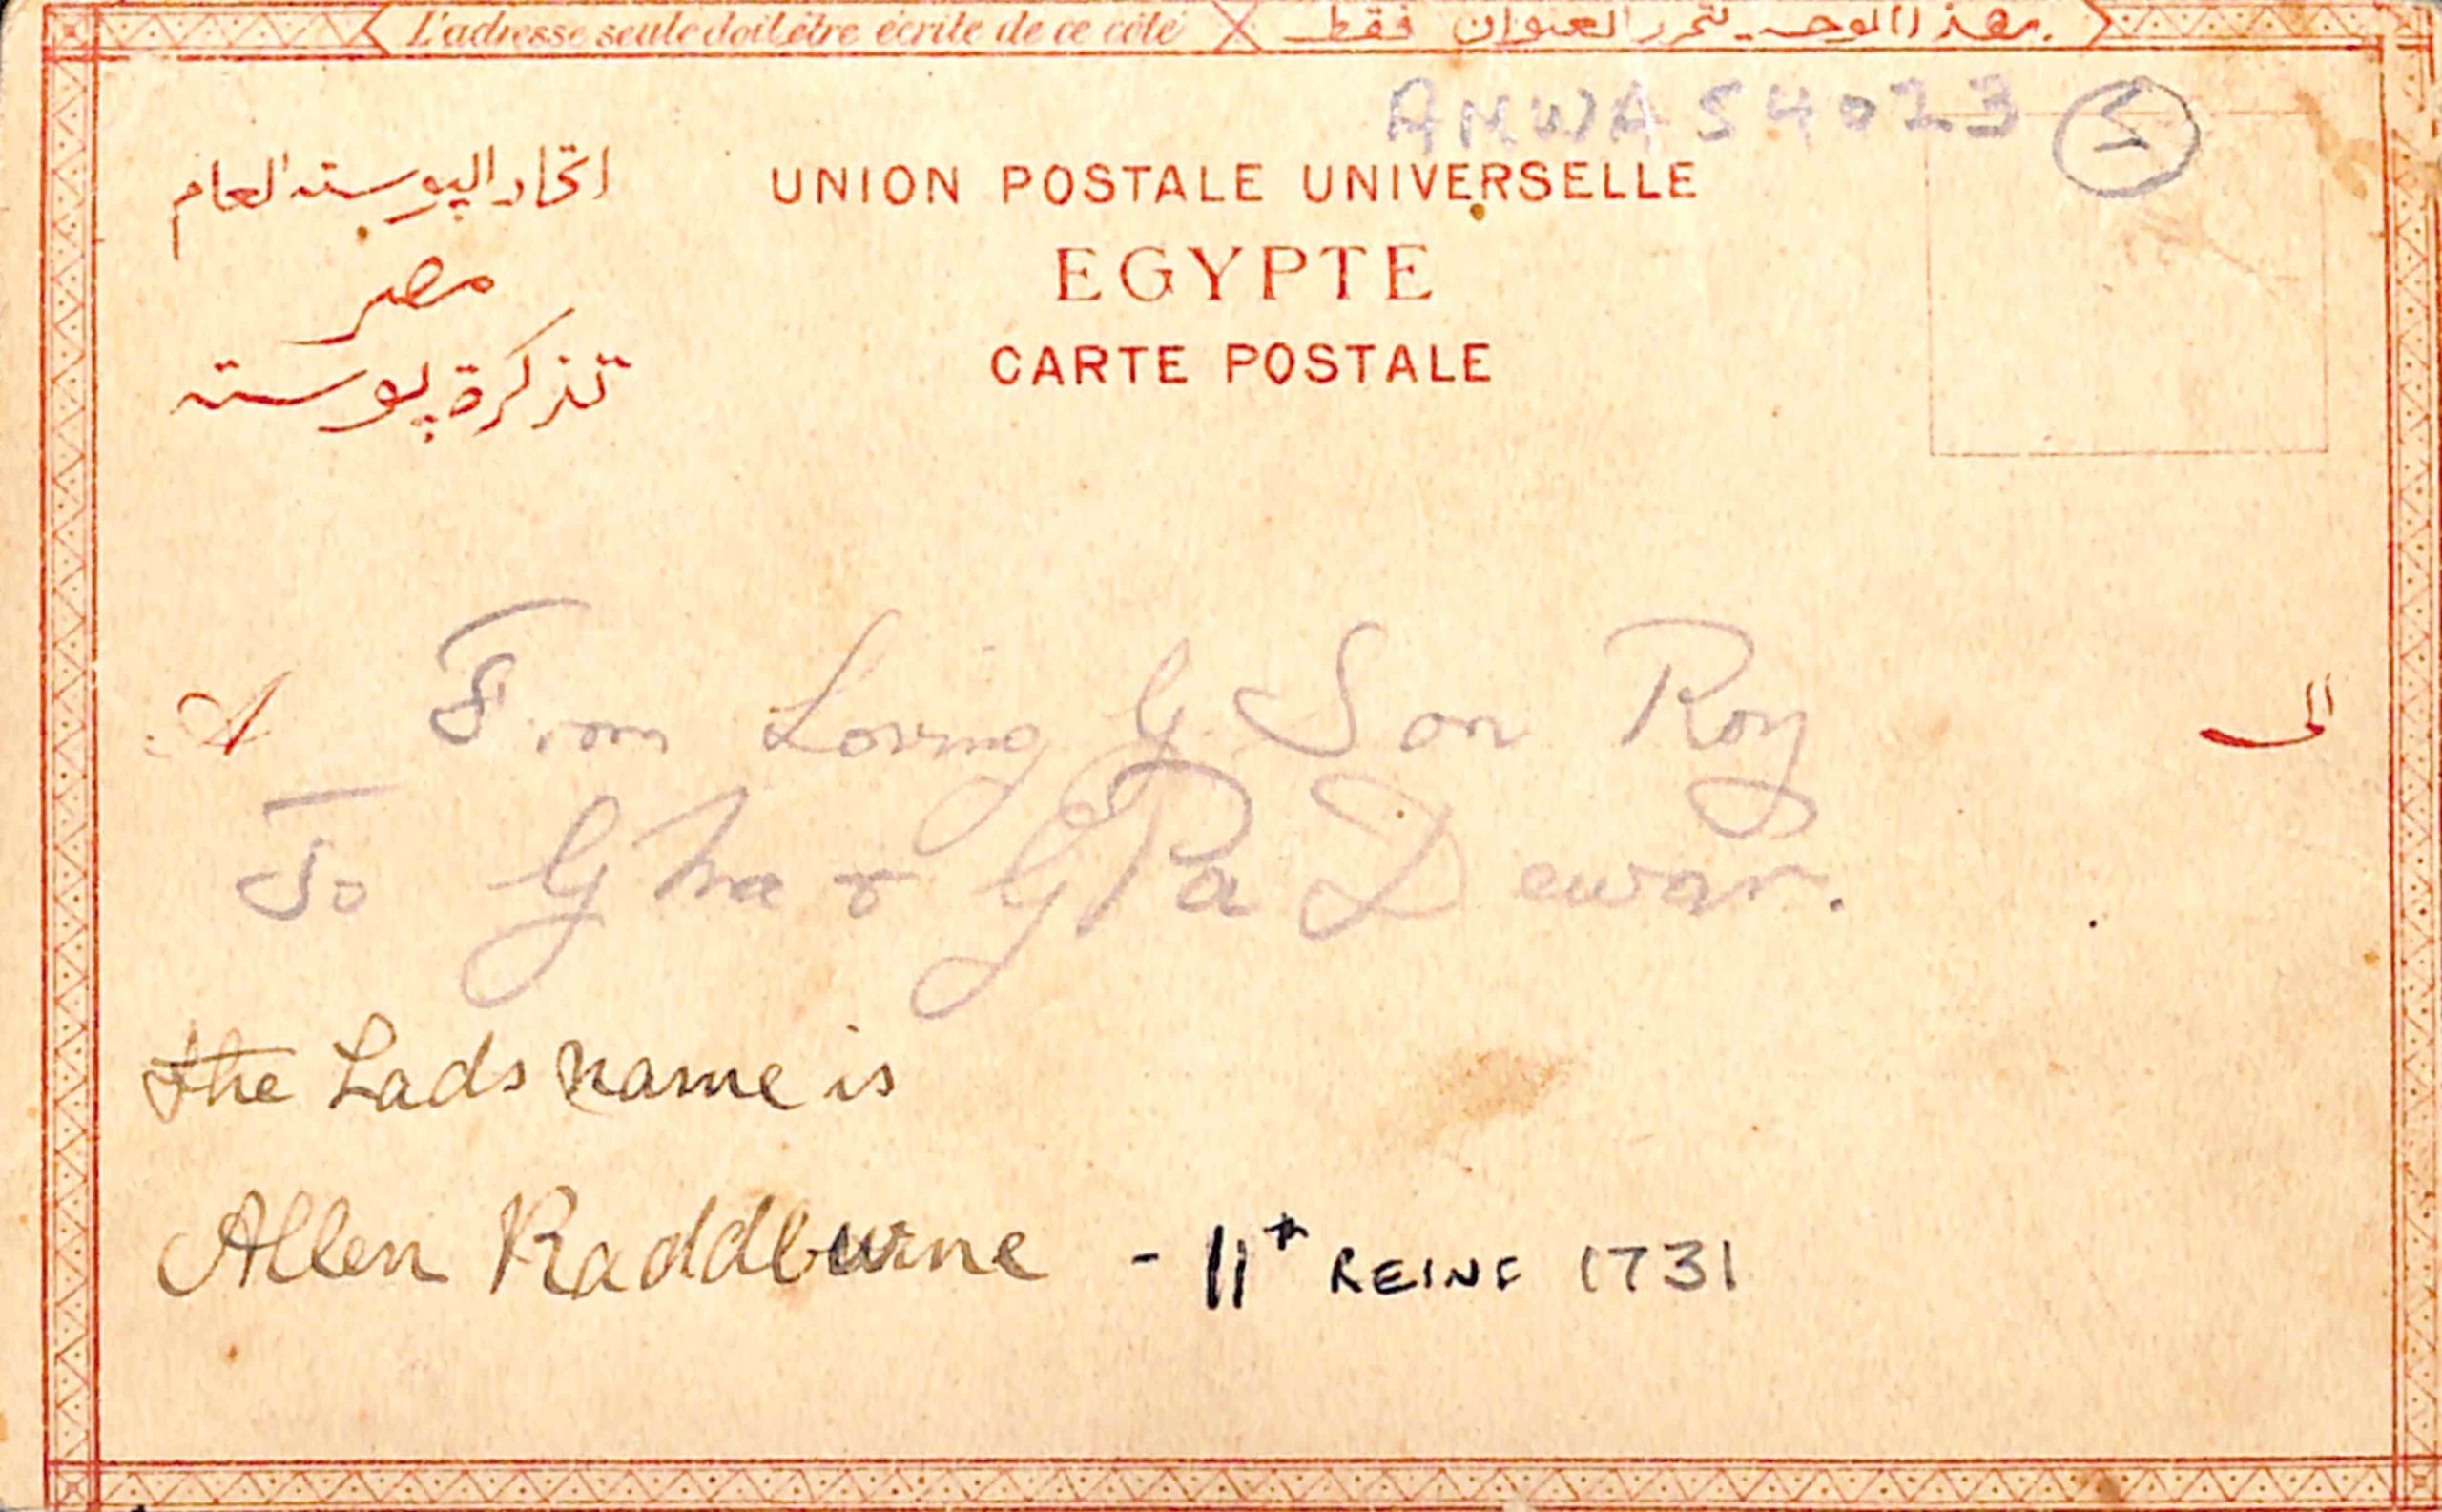 L'adresse seule doit être écrite de ce côté بهذا الوجه تحرر العنوان فقط
ANWAS4023 5
اتحاد البوسته العام
UNION POSTALE UNIVERSELLE
مصر
EGYPTE
تذكرة بوسته
CARTE POSTALE
A From Loving G Son Roy الى
To G Ma & G Pa Dewar.
The Lads name is
Allen Raddburne - 11th REINF 1731